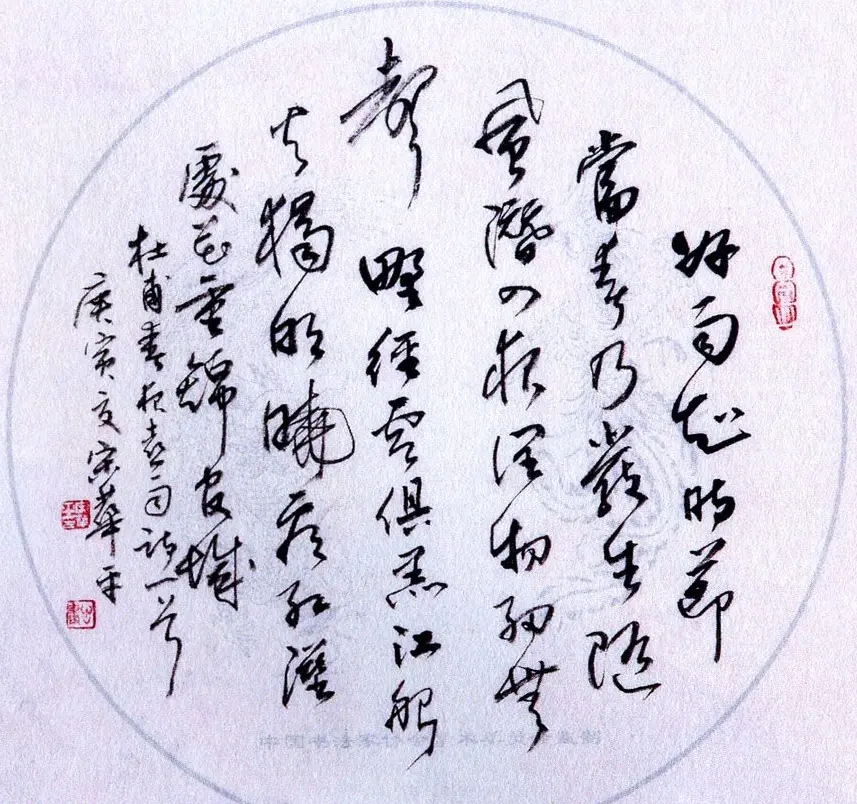 好雨知時節
當春乃發生隨
風潛入夜潤物細無
聲野徑雲俱黑江船
火獨明曉看紅濕
處花重錦官城
杜甫春夜喜雨詩一首
庚寅夏宋華平
中国书法家协会